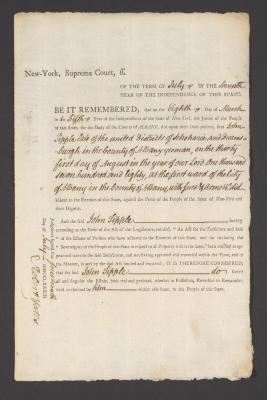 New-York, Supreme Court, ss.
OF THE TERM OF July IN THE Seventh
YEAR OF THE INDEPENDENCE OF THIS STATE.
BE IT REMEMBERED, that on the Eighth Day of March
in the Fifth Year of the Independence of the State of New-York, the Jurors of the People
of this State, for the Body of the County of ALBANY, did upon their Oath present, that John
Tipple Late of the united Districts of Schoharie and Duanes-
burgh in the County of Albany yeoman, on the thirty
first day of August in the year of our Lord One thousand
seven hundred and Eighty, at the first ward of the City
of Albany in the County of Albany, with force & Arms &c. did
adhere to the Enemies of this State, against the Peace of the People of the State of New-York and
their Dignity.
And the said John Tipple having
according to the Form of the Act of the Legislature, entitled, "An Act for the Forfeiture and Sale
"of the Estates of Persons who have adhered to the Enemies of this State, and for declaring the
"Sovereignty of the People of this State in respect to all Property within the same," been notified to appear
and traverse the said Indictment, and not having appeared and traversed within the Time, and in
the Manner, in and by the said Act limited and required; IT IS THEREFORE CONSIDERED,
that the said John Tipple do forfeit
all and singular the Estate, both real and personal, whether in Possession, Reversion or Remainder,
held or claimed by him within this State, to the People of this State.
Judgment Signed this fourteenth
Day July
Robert Yates